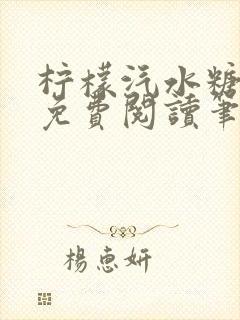 柠檬汽水糖
免費閱讀筆
楊惠妍